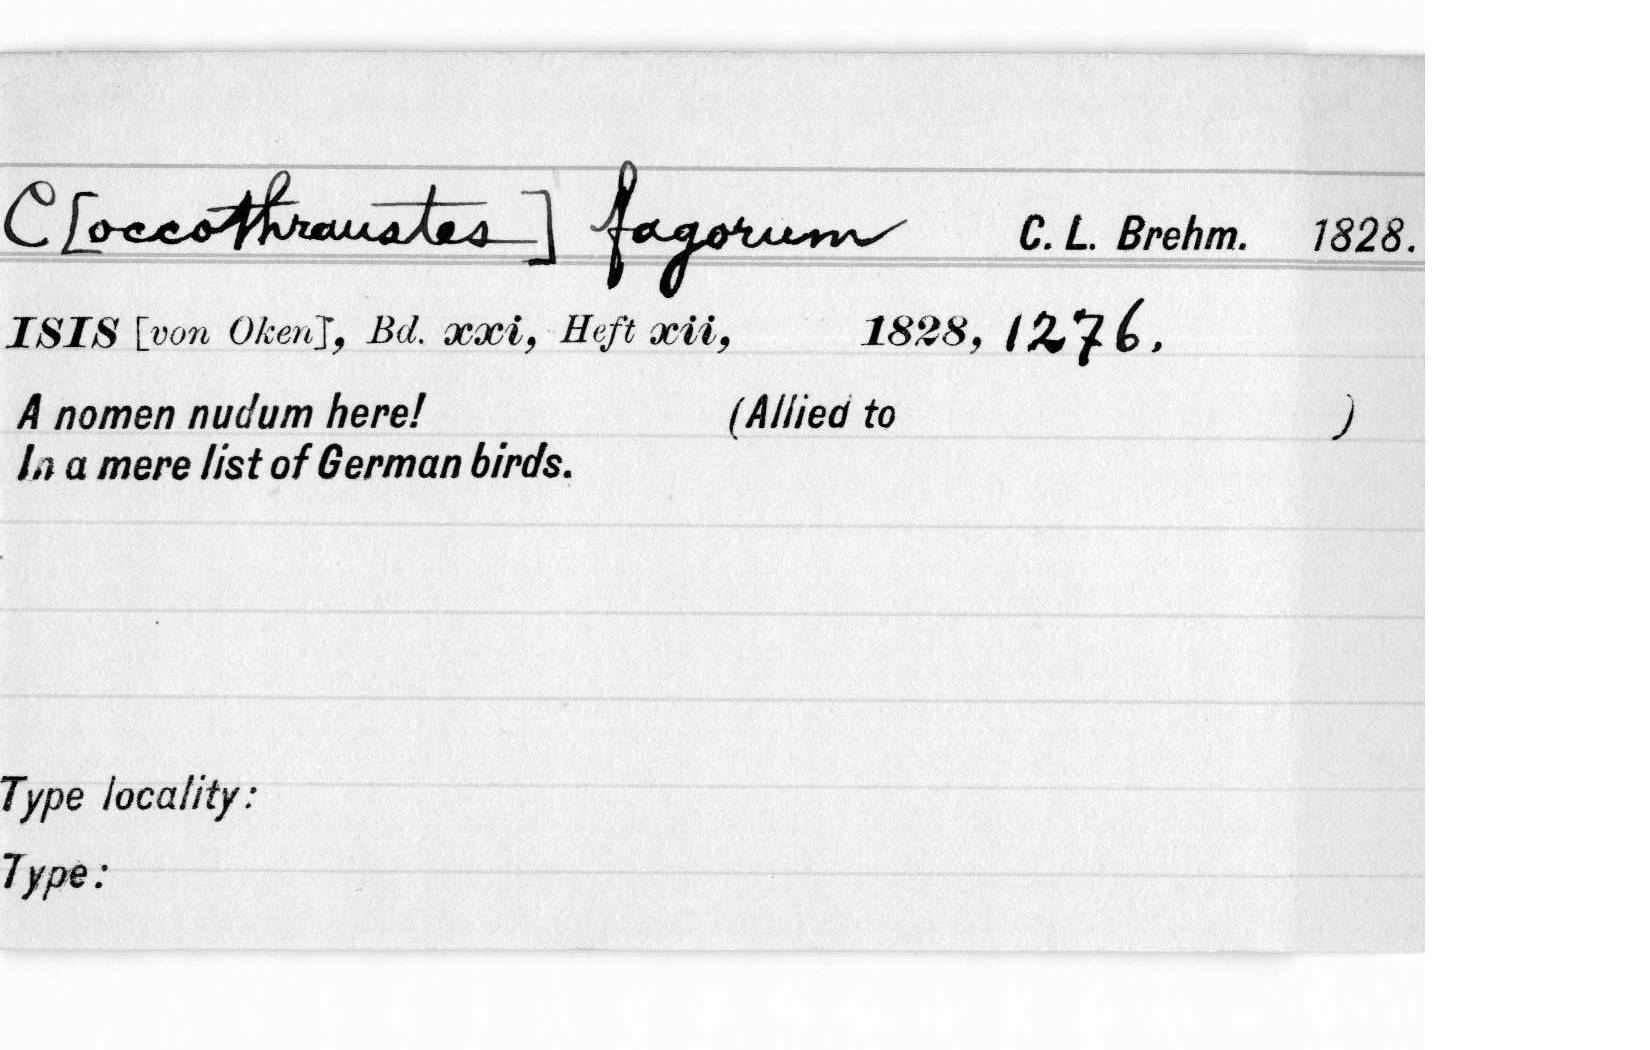 C[occothraustes] fagorum C. L. Brehm. 1828.
ISIS [von Oken], Bd. xxi, Heft xii, 1828, 1276.
A nomen nudum here! (Allied to )
In a mere list of German birds.
Type locality:
Type: